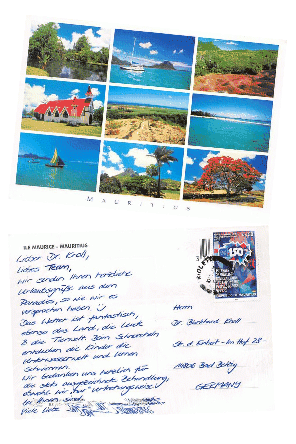 MAURITIUS
ILE MAURICE - MAURITIUS
Lieber Dr. Kroll,
liebes Team,
wir senden Ihnen herzliche
Urlaubsgrüße aus dem
Paradies, so wie wir es
versprochen haben
Das Wetter ist fantastisch,
ebenso das Land, die Leute
& die Tierwelt. Beim Schnorcheln
entdecken die Kinder die
Unterwasserwelt und lernen
schwimmen.
Wir bedanken uns herzlich für
die sehr ausgezeichnete Behandlung,
obwohl wir "nur" vertretungsweise
bei Ihnen sind.
Viele Liebe
150
Herrn
Dr. Kroll
GERMANY